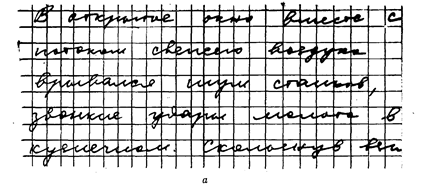 В открытое окно вместе с
потоком свежего воздуха
врывался шум станков,
звонкие удары молота в
кузнечном.
а